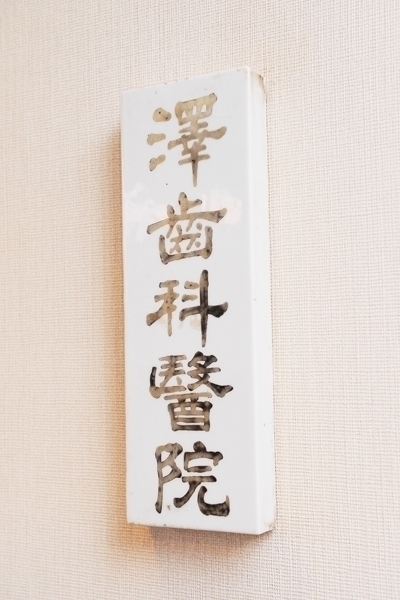 澤歯科醫院